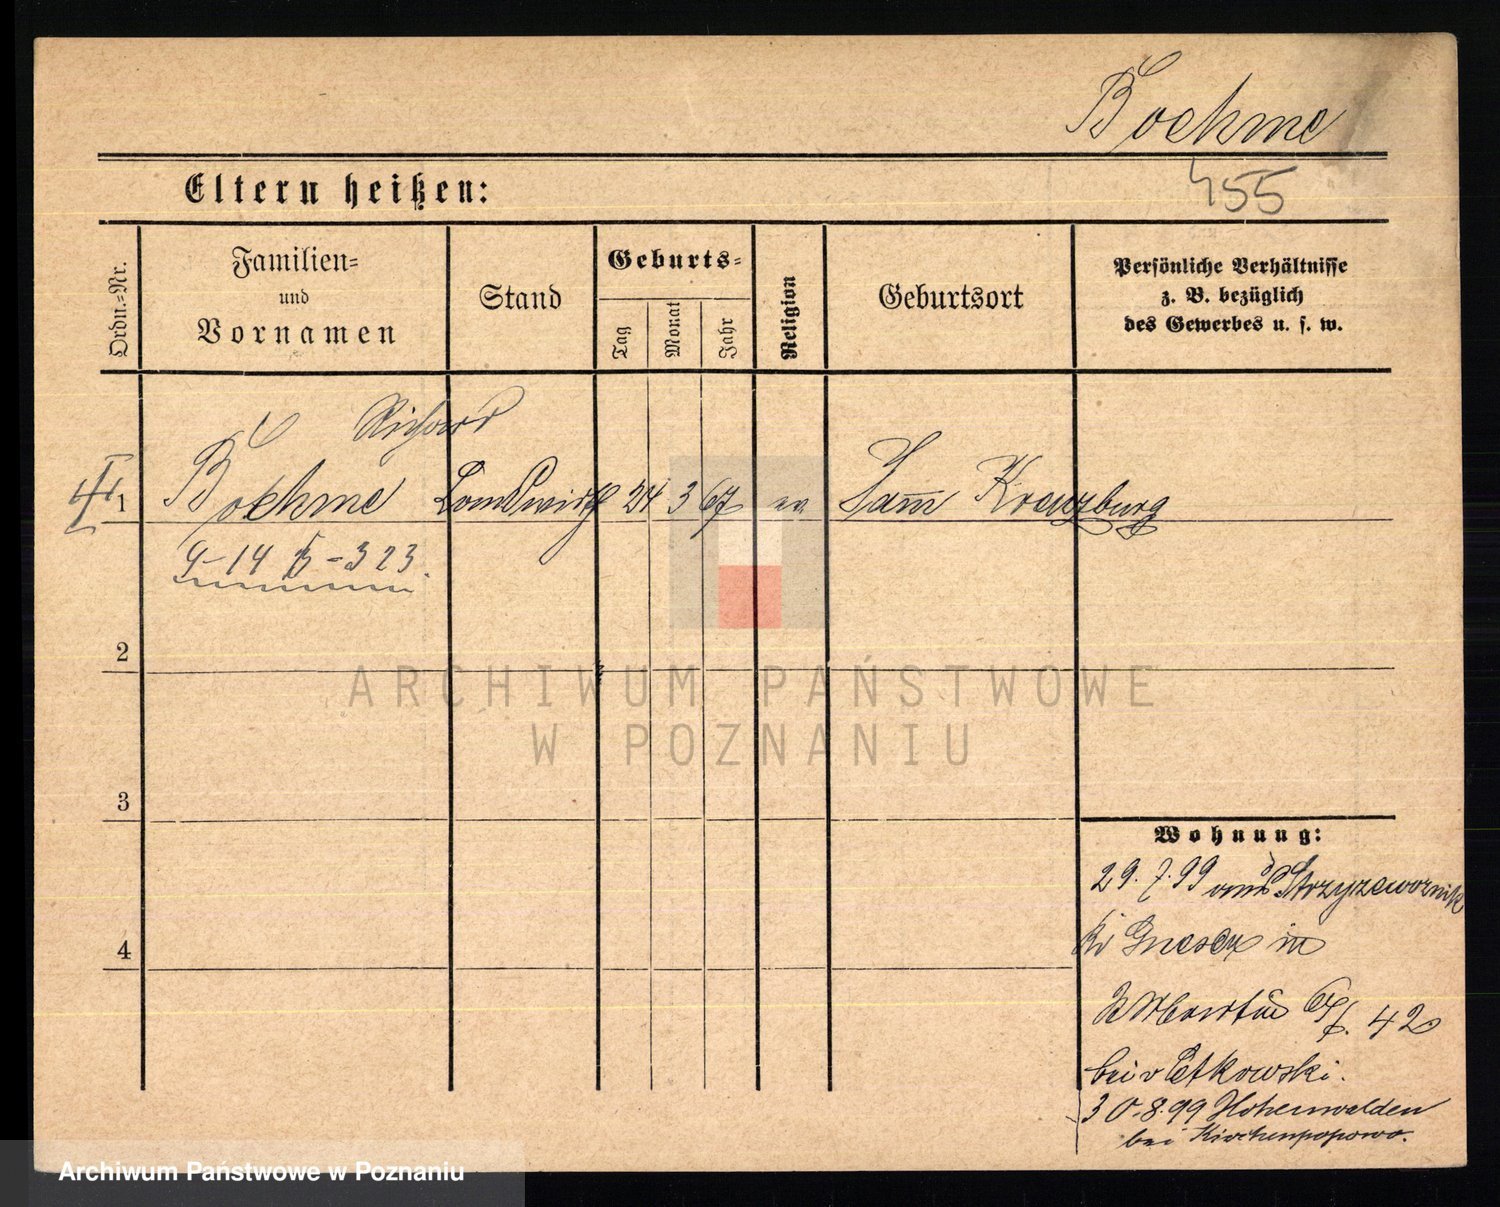 Boehme
455
Eltern heißen:
Ordn.-Nr.
Familien-
und
Vornamen
Stand
Geburts-
Tag
Monat
Jahr
Religion
Geburtsort
Persönliche Verhältnisse
z. B. bezüglich
des Gewerbes u. s. w.
Richard
1 Boehme Landwirth 24 3 67 ev Kreuzburg
G-14 B-323.
2
ARCHIWUM PAŃSTWOWE
W POZNANIU
3
Wohnung:
29.7.99 Strzyzewoznik
4
Kr Gnesen in
42
bei v Cetkowski.
30.8.99 Hohenwalden
bei Kirchenpopowo.
Archiwum Państwowe w Poznaniu